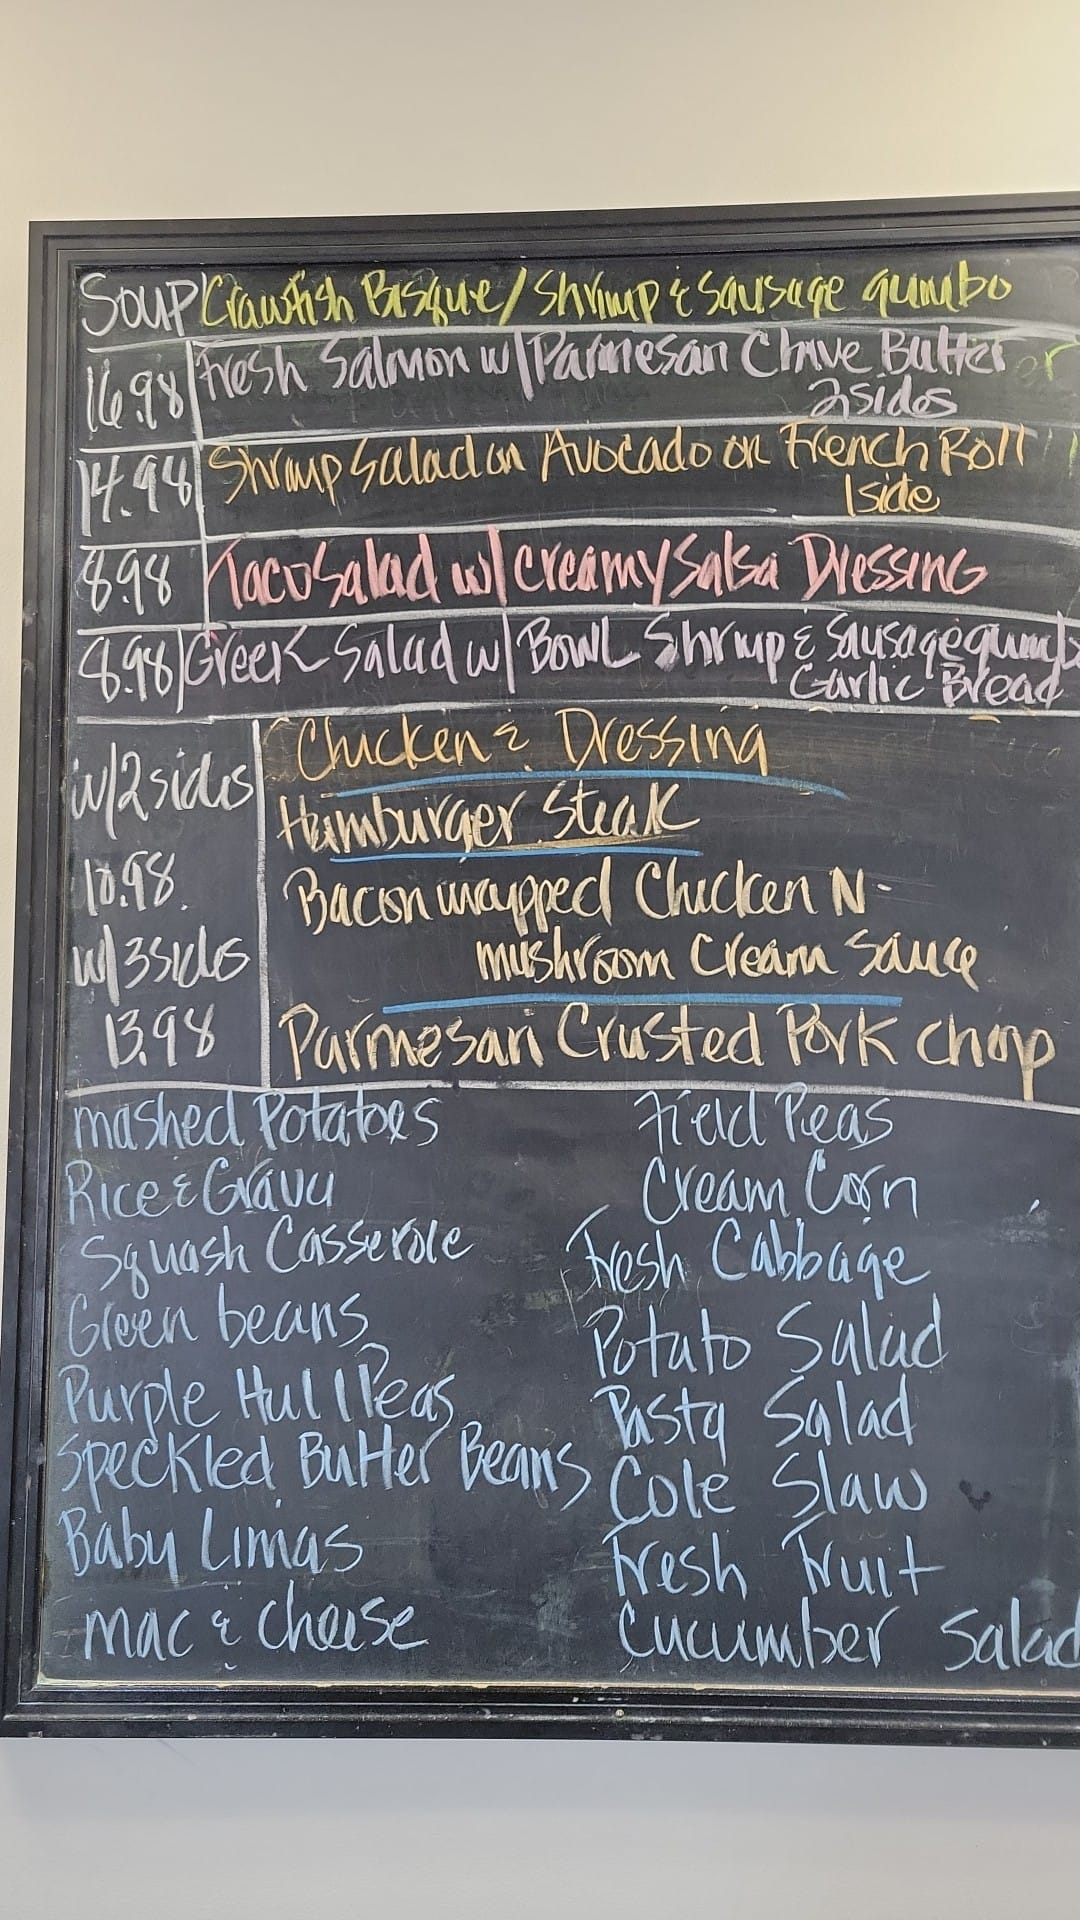 Soup Crawfish Bisque / Shrimp & Sausage gumbo
16.98 Fresh Salmon w/ Parmesan Chive Butter
2 sides
14.98 Shrimp Salad on Avocado on French Roll
1 side
8.98 Taco Salad w/ Creamy Salsa Dressing
8.98 Greek Salad w/ Bowl Shrimp & Sausage gumb
Garlic Bread
w/2 sides Chicken & Dressing
Hamburger Steak
10.98. Bacon wrapped Chicken N-
w/3 sides mushroom Cream Sauce
13.98 Parmesan Crusted Pork Chop
mashed Potatoes Field Peas
Rice & Gravy Cream Corn
Squash Casserole Fresh Cabbage
Green beans Potato Salad
Purple Hull Peas Pasta Salad
Speckled Butter Beans Cole Slaw
Baby Limas Fresh Fruit
mac & cheese Cucumber Salad